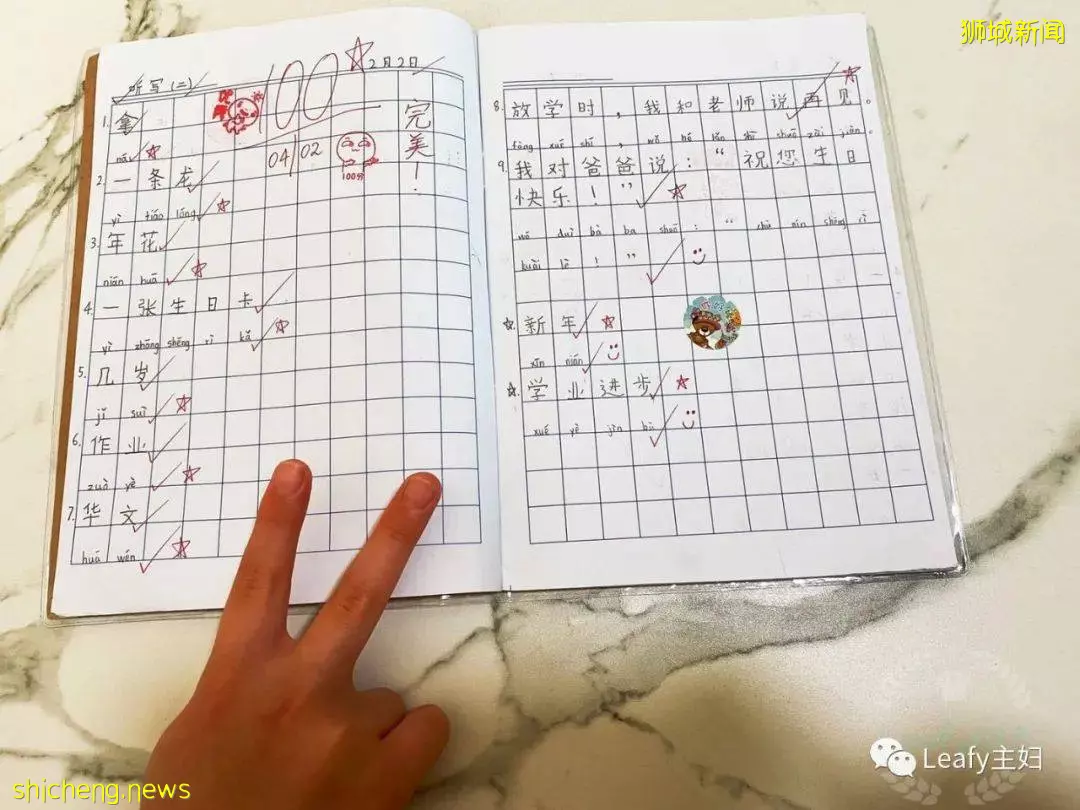 狮城新闻
听写(二) 100 2月2日
完美!
04/02
100分
1. 拿
ná
2. 一条龙
yì tiáo lóng
3. 年花
nián huā
4. 一张生日卡
yì zhāng shēng rì kǎ
5. 几岁
jǐ suì
6. 作业
zuò yè
7. 华文
huá wén
8. 放学时,我和老师说再见。
fàng xué shí , wǒ hé lǎo shī shuō zài jiàn 。
9. 我对爸爸说:“祝您生日
快乐!”
wǒ duì bà ba shuō : “ zhù nín shēng rì
kuài lè ! ”
☆. 新年
xīn nián
☆. 学业进步
xué yè jìn bù
Leafy主妇
shicheng.news